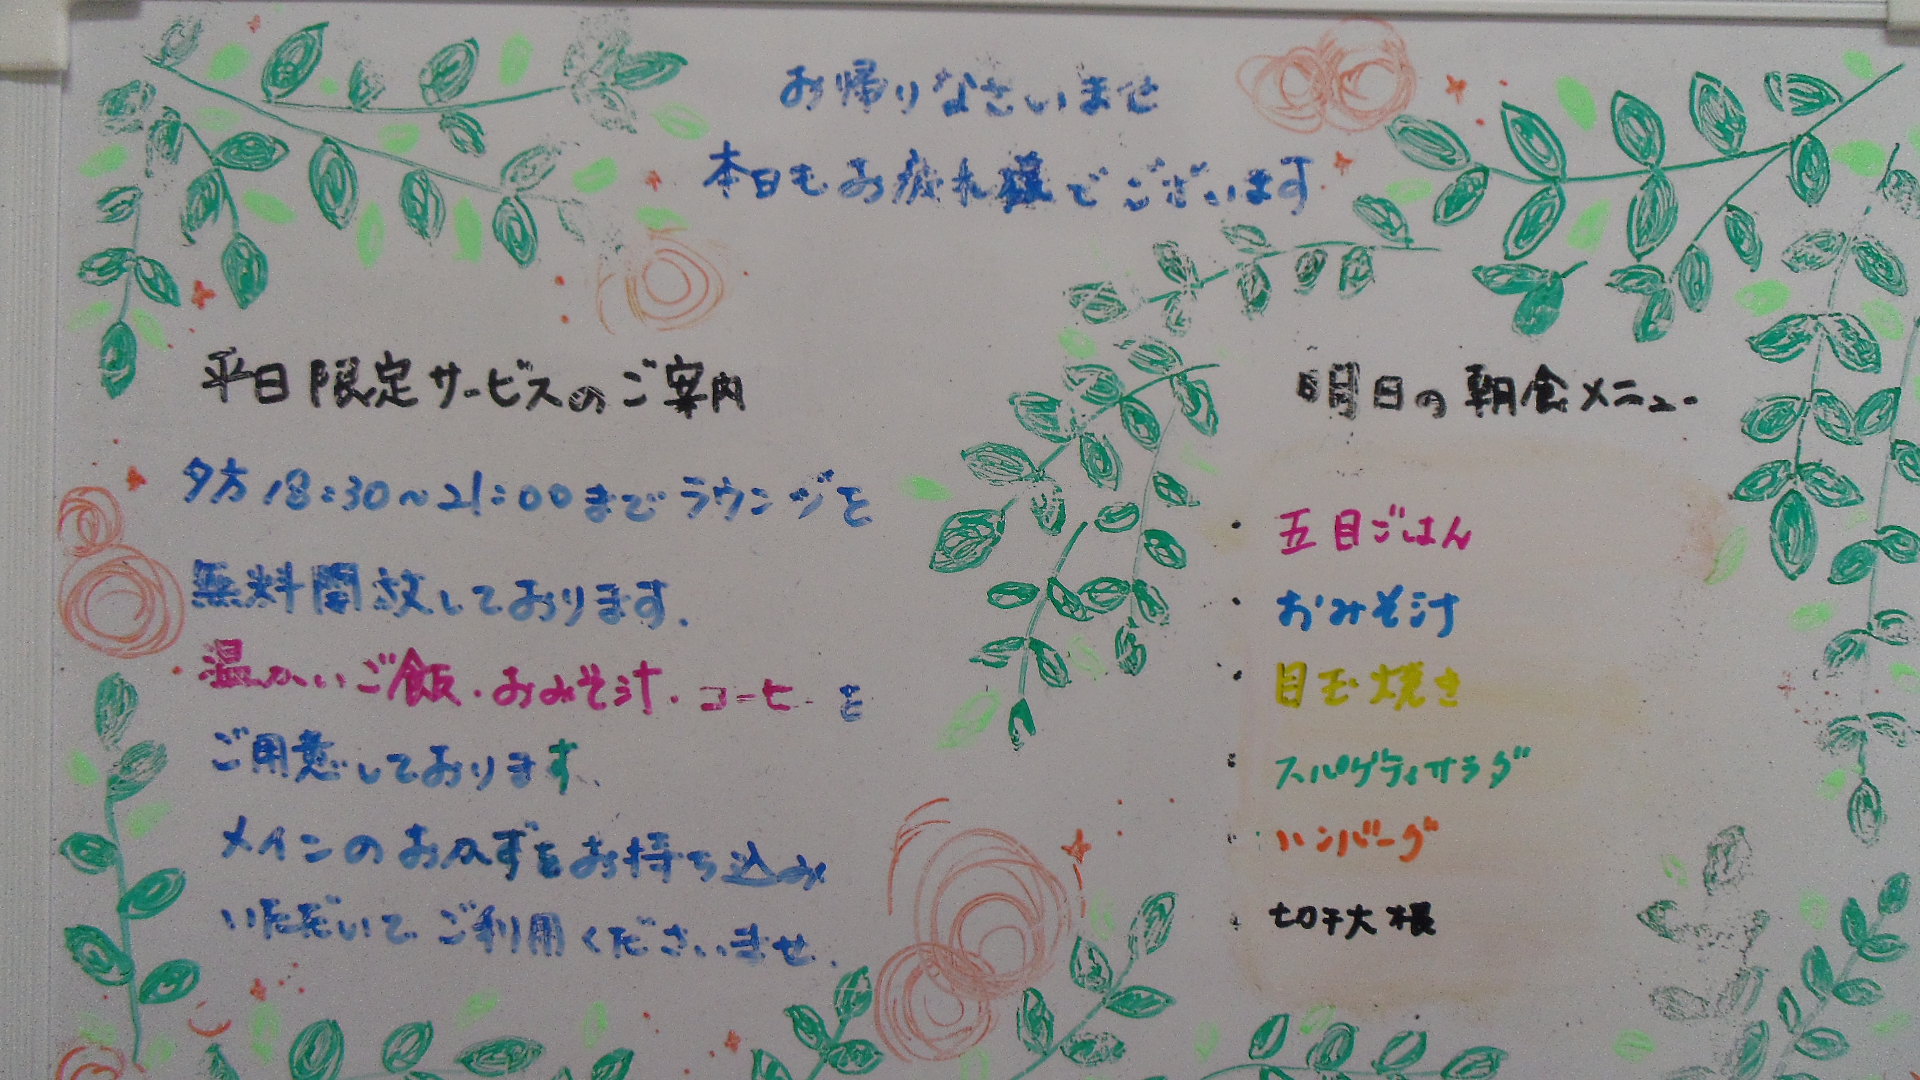 お帰りなさいませ
本日もお疲れ様でございます
平日限定サービスのご案内
夕方18:30～21:00までラウンジを
無料開放しております.
温かいご飯・おみそ汁・コーヒーを
ご用意しております.
メインのおかずをお持ち込み
いただいてご利用くださいませ.
明日の朝食メニュー
・五目ごはん
・おみそ汁
・目玉焼き
・スパゲティサラダ
・ハンバーグ
・切干大根